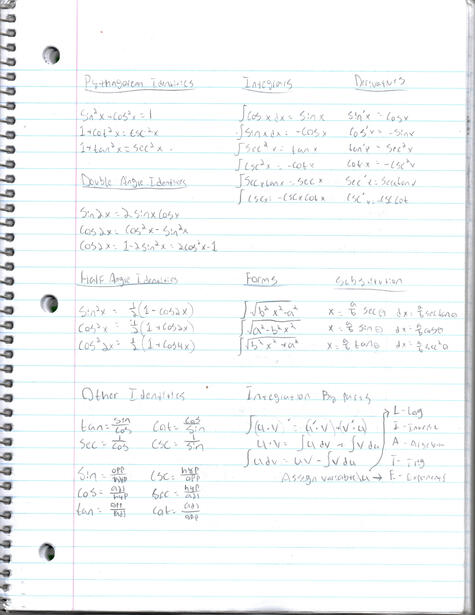 Pythagorean Identities
sin²x + cos²x = 1
1 + cot²x = csc²x
1 + tan²x = sec²x
Double Angle Identities
sin2x = 2 sinx cosx
cos2x = cos²x - sin²x
cos2x = 1 - 2sin²x = 2cos²x - 1
Integrals
∫cosx dx = sinx
∫sinx dx = -cosx
∫sec²x = tanx
∫csc²x = -cotx
∫secx tanx = secx
Derivatives
sin'x = cosx
cos'x = -sinx
tan'x = sec²x
cot'x = -csc²x
sec'x = secxtanx
Half Angle Identities
sin²x = ½(1 - cos2x)
cos²x = ½(1 + cos2x)
cos²2x = ½(1 + cos4x)
Forms
∫√b²x² - a²
∫√a² - b²x²
∫√b²x² + a²
Substitution
x = a/b secθ dx = a/b secθtanθ
x = a/b sinθ dx = a/b cosθ
x = a/b tanθ dx = a/b sec²θ
Other Identities
tan = sin/cos cot = cos/sin
sec = 1/cos csc = 1/sin
sin = opp/hyp csc = hyp/opp
cos = adj/hyp sec = hyp/adj
tan = opp/adj cot = adj/opp
Integration By Parts
∫(u·v)' = (u'·v) + (v'·u)
u·v = ∫u dv + ∫v du
∫u dv = uv - ∫v du
Assign variable u →
L - Log
I - Inverse
A -
T - Trig
E -